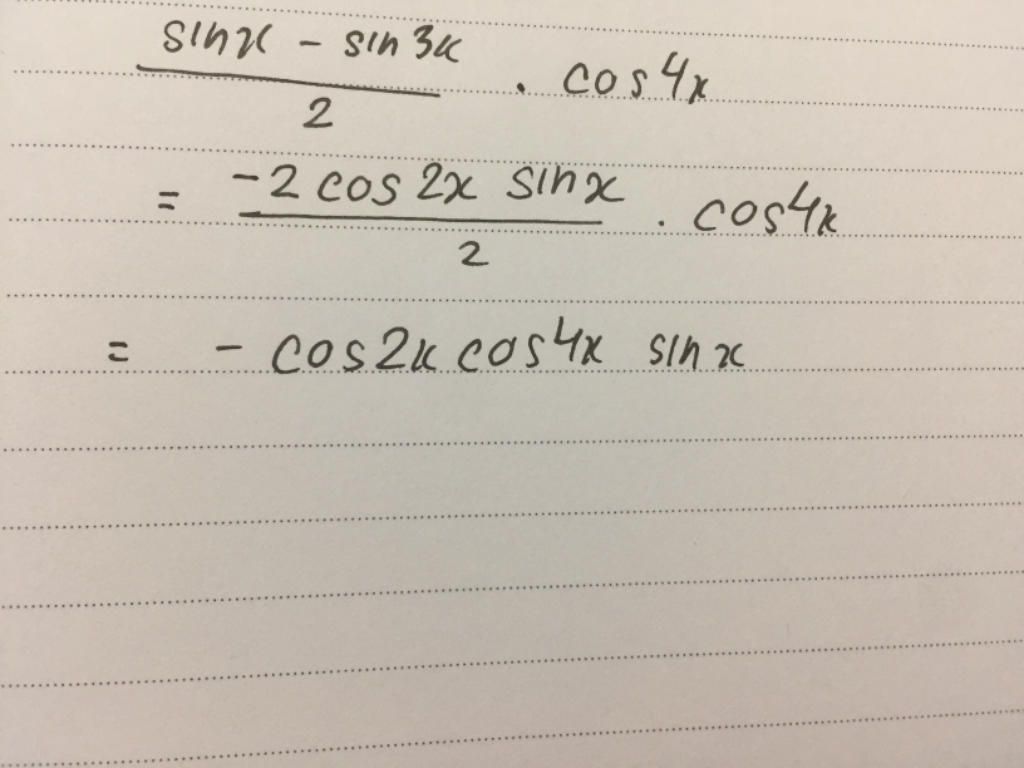 sinx - sin3x / 2 . cos4x
= -2 cos2x sinx / 2 . cos4x
= - cos2x cos4x sinx